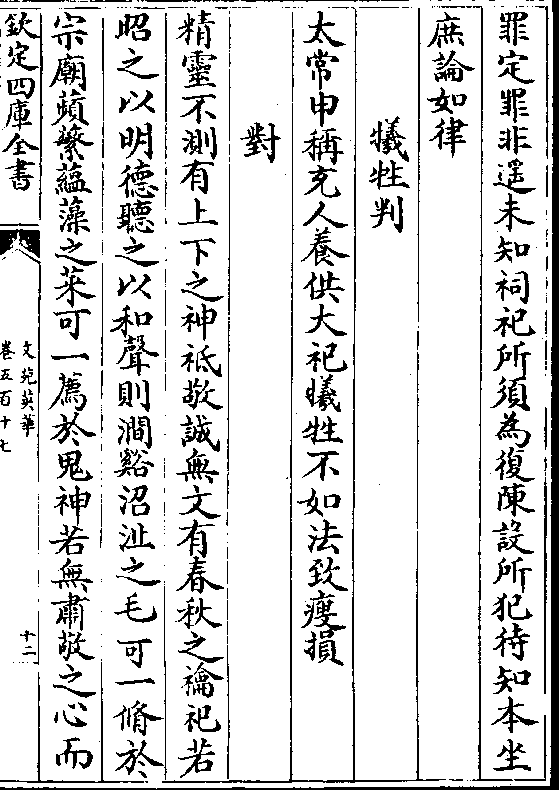 罪定罪非遥未知祠祀所須為復陳設所犯待知本坐
庶論如律
犧牲判
太常申稱充人養供大祀犧牲不如法致瘦損
對
精靈不測有上下之神祇敬誠無文有春秋之禴祀若
昭之以明德聽之以和聲則澗谿沼沚之毛可一脩於
宗廟蘋蘩藴藻之菜可一薦於鬼神若無肅敬之心而
欽定四庫全書
文苑英華
卷五百十七
十二